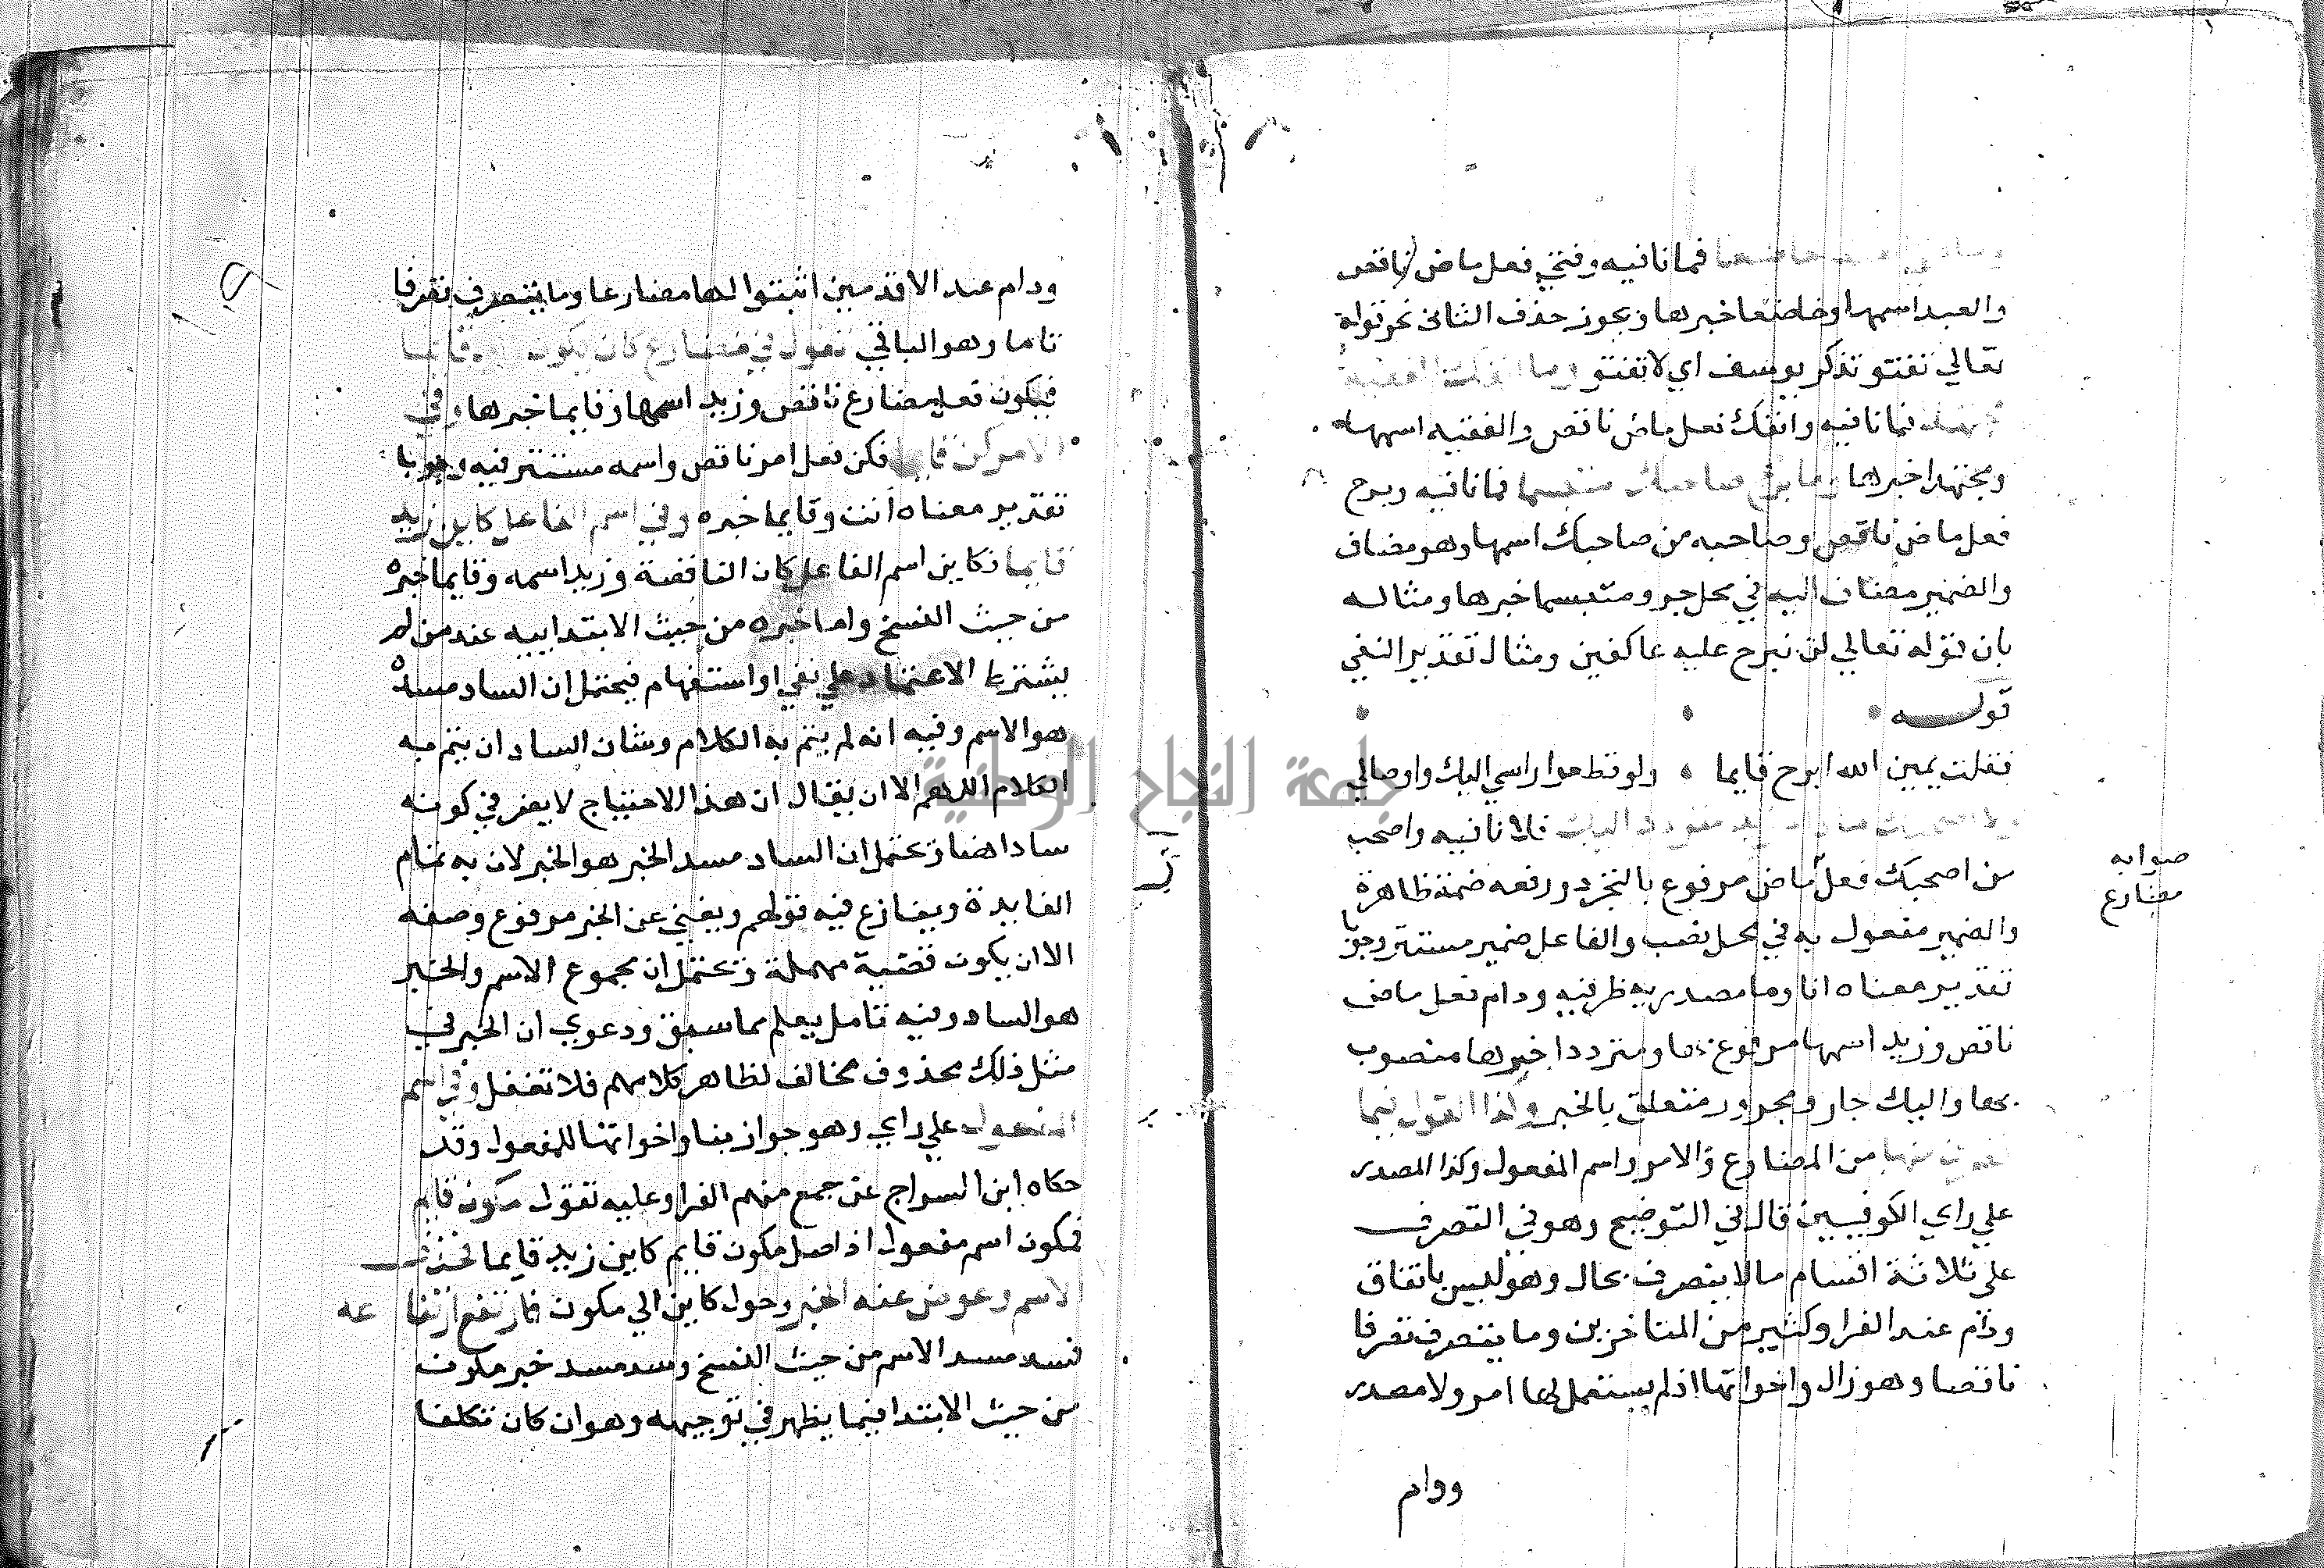 فما نافيه وفتي فعل ماض ناقص
والعبد اسمها وخاضعا خبرها ويجوز حذف الثاني نحو قوله
تعالي تفتو تذكر يوسف اي لا تفتو وما انفك الفقيه
مجتهدا فما نافيه وانفك فعل ماض ناقص والفقيه اسمها
ومجتهدا خبرها وما برح صاحبك متبسما فما نافيه وبرح
فعل ماض ناقص وصاحبه من صاحبك اسمها وهو مضاف
والضمير مضاف اليه في محل جر ومتبسما خبرها ومثاله
بان قوله تعالي لن نبرح عليه عاكفين ومثال تقدير النفي
قوله
فقلت يمين الله ابرح قايما ولو قطعوا راسي اليك واوصالي
فلا نافيه واصحب
من اصحبك فعل ماض مرفوع بالتجرد ورفعه ضمة ظاهرة
صوابه
مضارع
والضمير مفعول به في محل نصب والفاعل ضمير مستتر وجوبا
تقدير معناه انا وما مصدريه ظرفيه ودام فعل ماض
ناقص وزيد اسمها مرفوع بها ومترددا خبرها منصوب
بها واليك جار ومجرور متعلق بالخبر وكذا القول فيما
من المضارع والامر واسم المفعول وكذا المصدر
علي راي الكوفيين قال في التوضيح وهو في التصرف
علي ثلاثة اقسام ما لا يتصرف بحال وهو ليس باتفاق
ودام عند الفرا وكثير من المتاخرين وما يتصرف تصرفا
ناقصا وهو زال واخواتها اذ لم يستعمل لها امر ولا مصدر
ودام
ودام عند الاقدمين اثبتوا لها مضارعا وما يتصرف تصرفا
تاما وهو الباقي تقول في مضارع كان يكون زيد قايما
فيكون فعل مضارع ناقص وزيد اسمها وقايما خبرها وفي
الامر كن قايما فكن فعل امر ناقص واسمه مستتر فيه وجوبا
تقدير معناه انت وقايما خبره وفي اسم الفاعل كاين زيد
قايما فكاين اسم الفاعل كان الناقصة وزيد اسمه وقايما خبره
من حيث النسخ واما خبره من حيث الابتداييه عند من لم
يشترط الاعتماد علي نفي او استفهام فيحتمل ان الساد مسده
هو الاسم وفيه انه لم يتم به الكلام وشان الساد ان يتم به
الكلام اللهم الا ان يقال ان هذا الاحتياج لا يضر في كونه
سادا هنا وتحتمل ان الساد مسد الخبر هو الخبر لان به تمام
الفايدة وينازع فيه قولهم ويغني عن الخبر مرفوع وصفه
الا ان يكون قضية مهملة وتحتمل ان مجموع الاسم والخبر
هو الساد وفيه تامل يعلم مما سبق ودعوي ان الخبر في
مثل ذلك محذوف مخالف لظاهر كلامهم فلا تغفل وفي اسم
المفعول علي راي وهو جواز بنا واخواتها للمفعول وقد
حكاه ابن السراج عن جمع منهم الفرا وعليه تقول مكون قايم
فمكون اسم مفعول اذ اصل مكون قايم كاين زيد قايما فحذف
الاسم وعوض عنه الخبر وحول كاين الي مكون فارتفع ارتفاعه
فسد مسد الاسم من حيث النسخ وسد مسد خبر مكون
من حيث الابتدا فيما يظهر في توجيهه وهو ان كان تكلفا
جامعة النجاح الوطنية